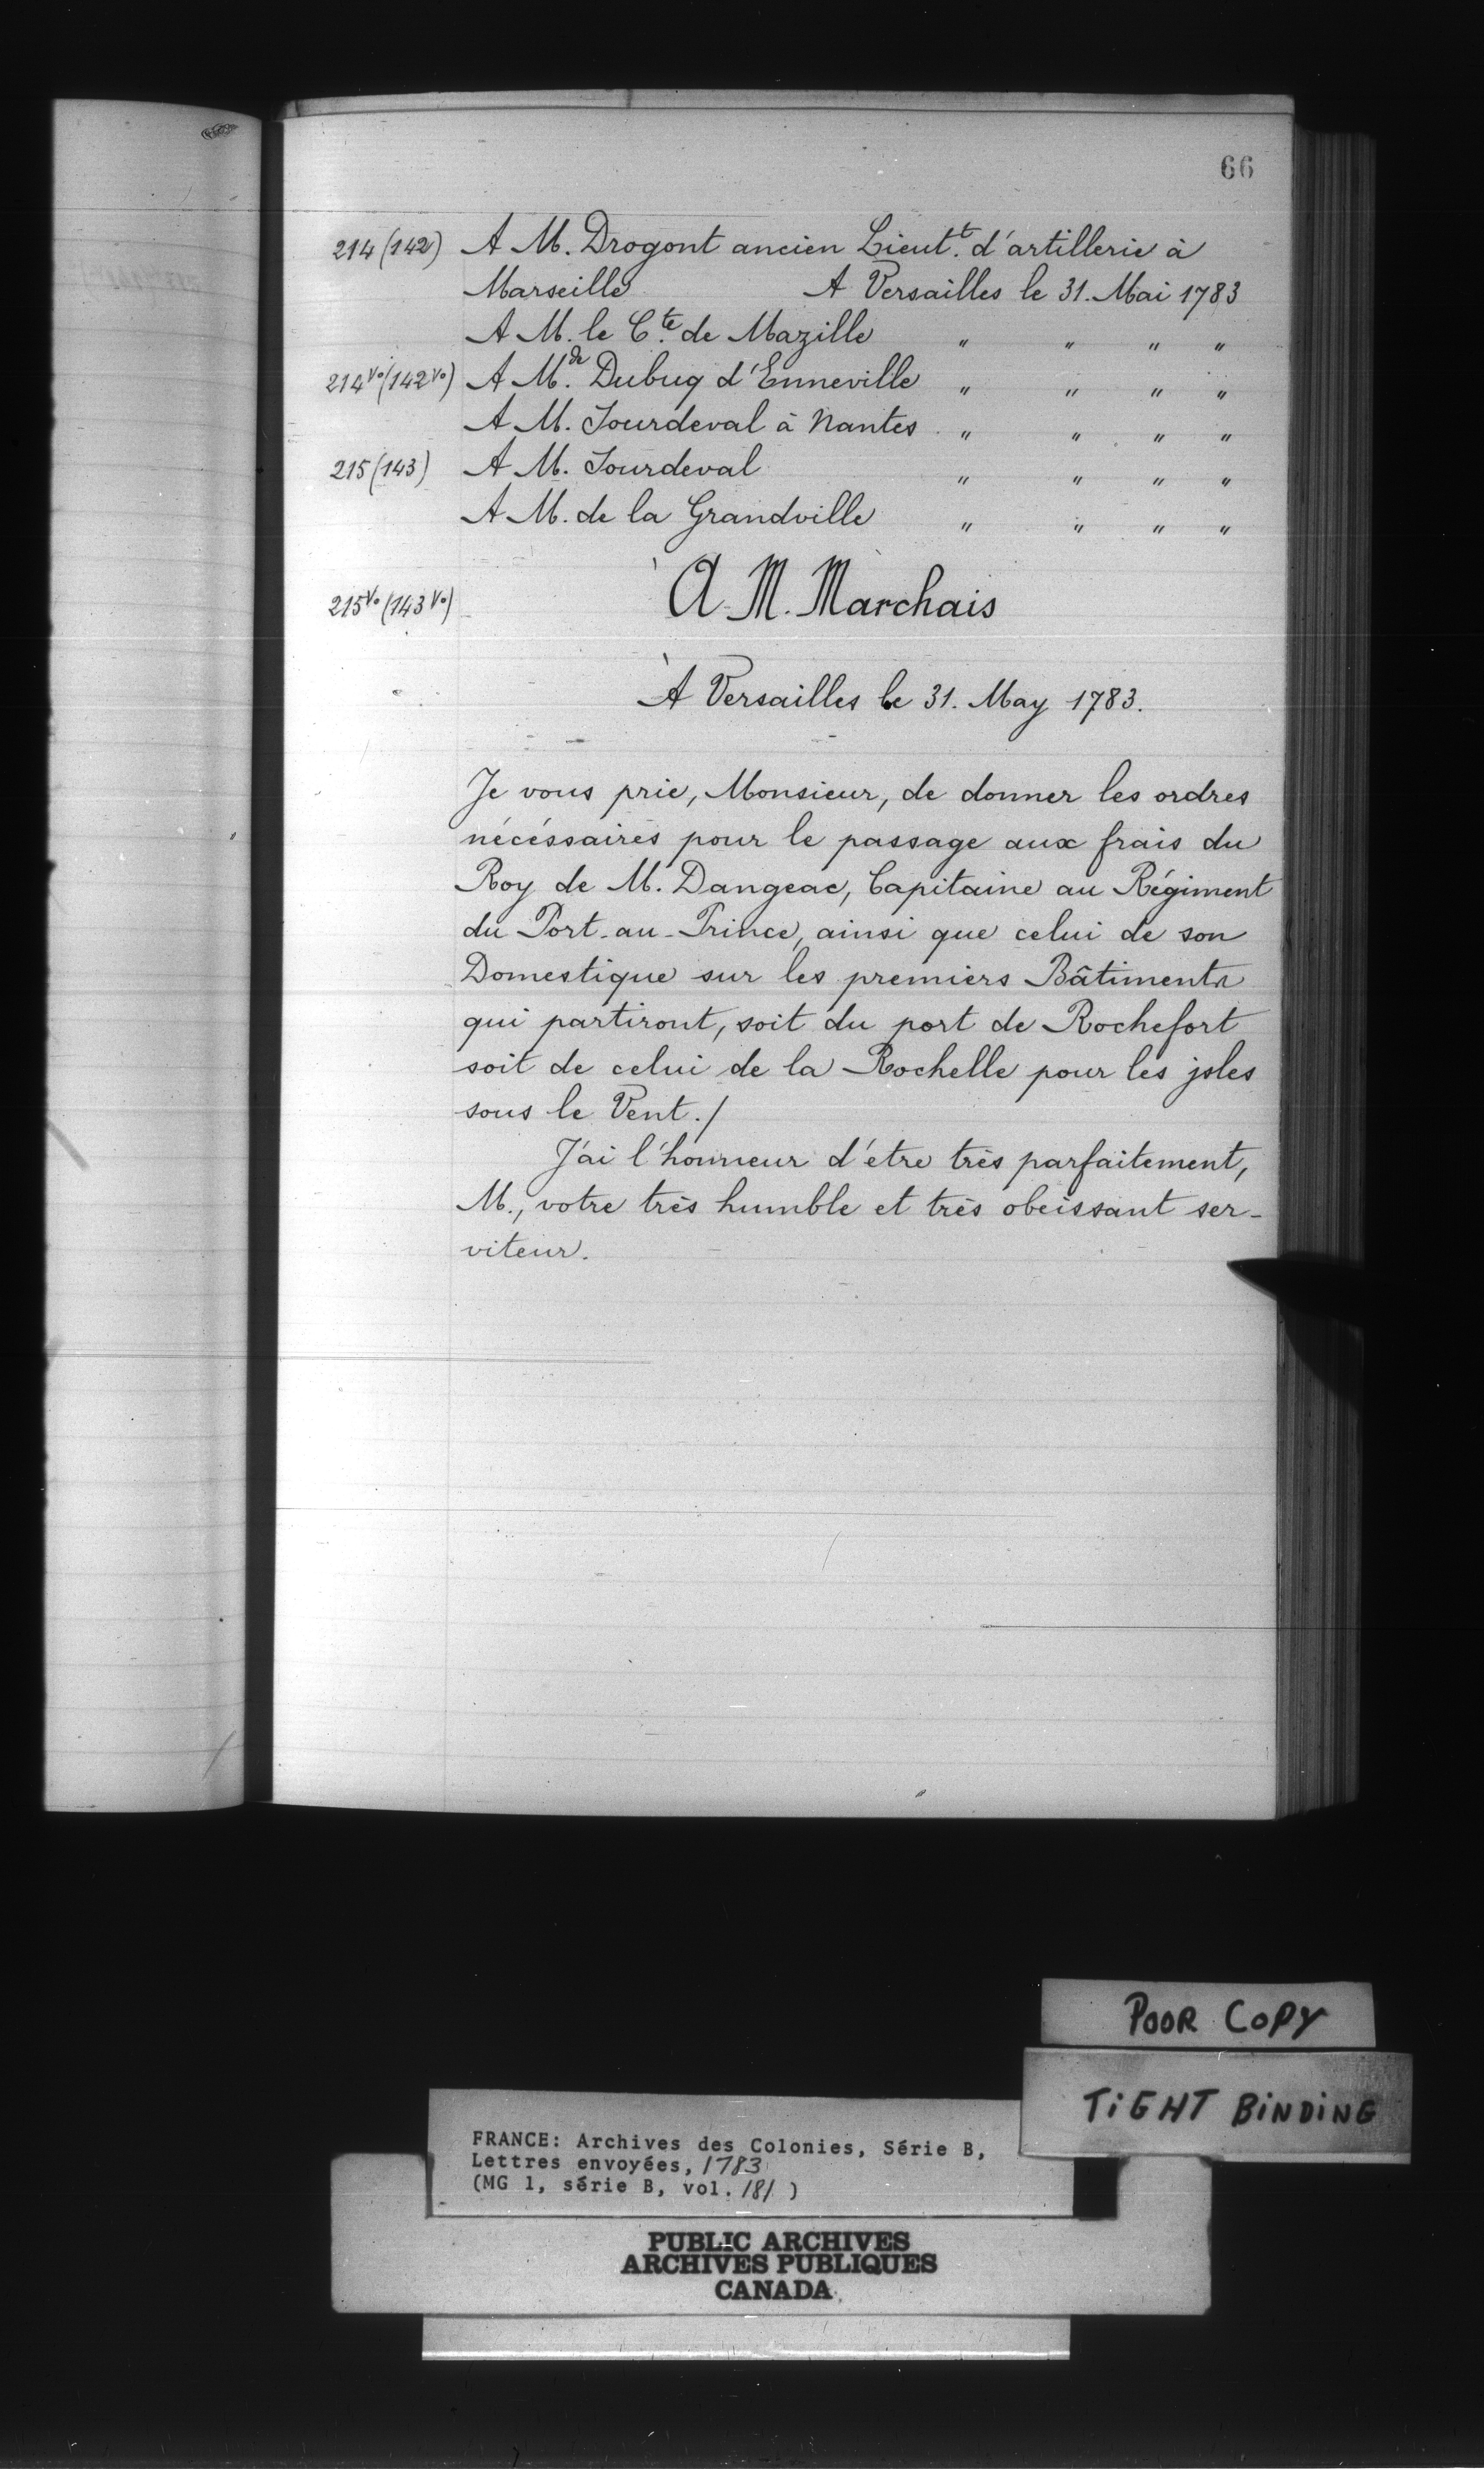 66
214 (142) A M. Drogont ancien Lieut.t d'artillerie à
Marseille A Versailles le 31. Mai 1783
A M. le C.te de Mazille " " " "
214 vo (142 vo) A M.de Dubuq d'Enneville " " " "
A M. Jourdeval à Nantes " " " "
215 (143) A M. Jourdeval " " " "
A M. de la Grandville " " " "
215 Vo (143 Vo) A M. Marchais
À Versailles le 31. May 1783.
Je vous prie, Monsieur, de donner les ordres
nécéssaires pour le passage aux frais du
Roy de M. Dangeac, Capitaine au Régiment
du Port-au-Prince, ainsi que celui de son
Domestique sur les premiers Bâtiments
qui partiront, soit du port de Rochefort
soit de celui de la Rochelle pour les jsles
sous le Vent./
J'ai l'honneur d'etre très parfaitement,
M., votre très humble et très obeissant ser-
viteur.
POOR COPY
TIGHT BINDING
FRANCE: Archives des Colonies, Série B,
Lettres envoyées, 1783
(MG 1, série B, vol. 181 )
PUBLIC ARCHIVES
ARCHIVES PUBLIQUES
CANADA